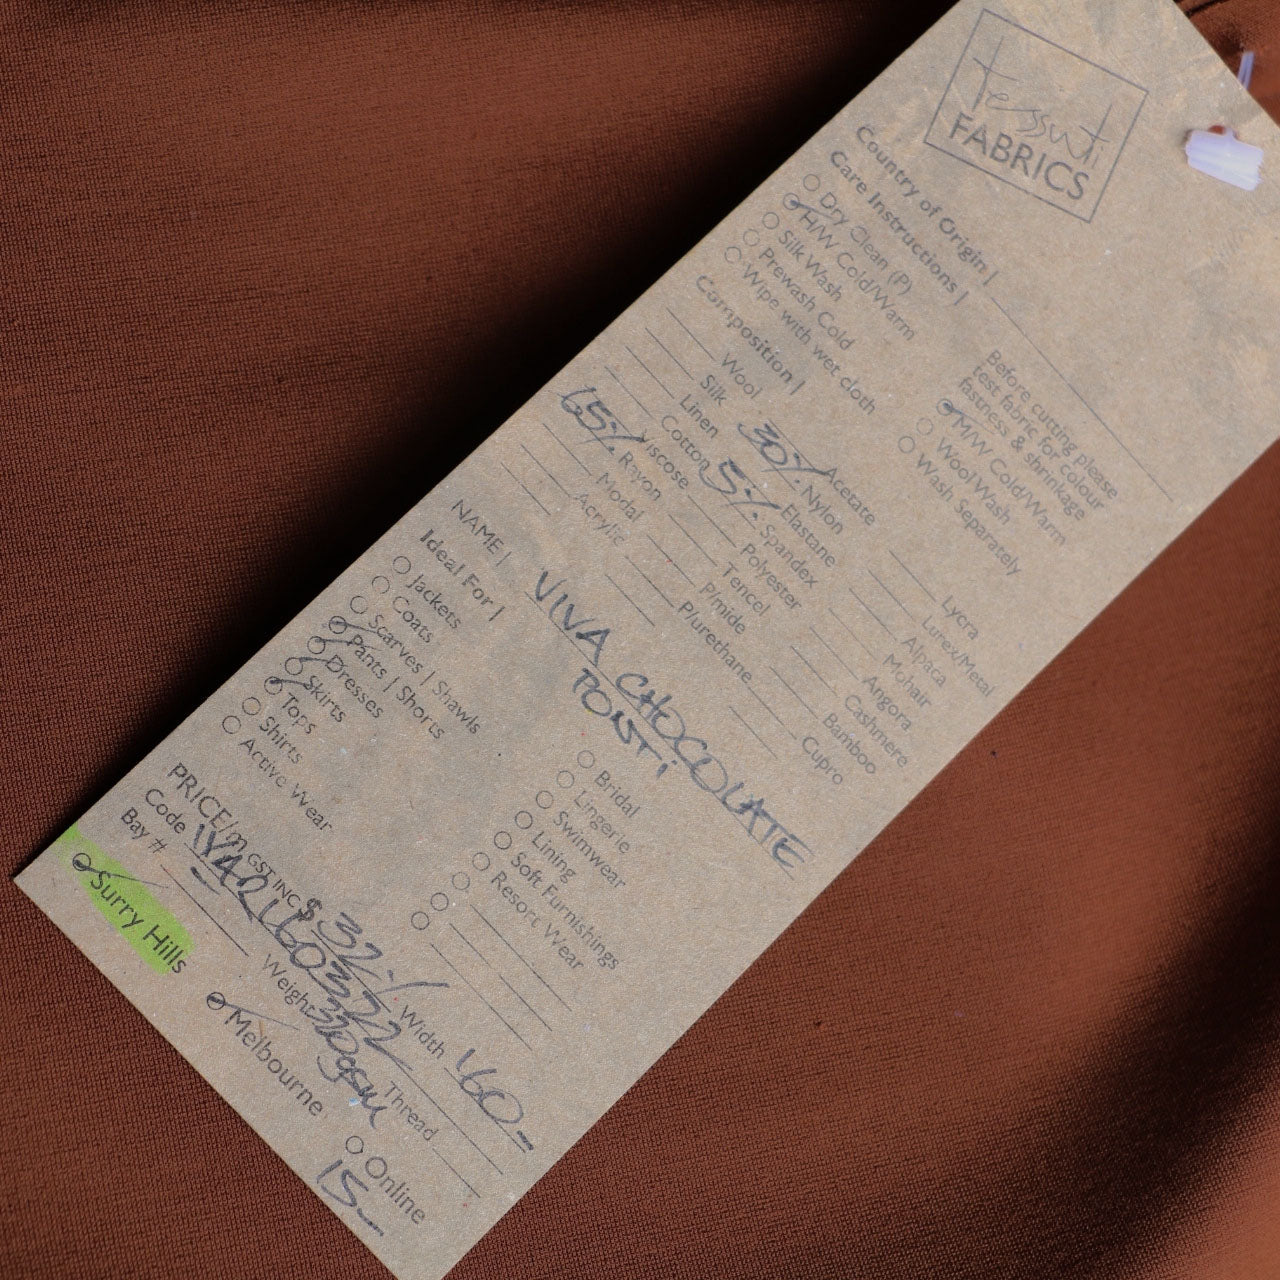 tessuti
FABRICS
Country of Origin |
Care Instructions |
Dry Clean (P)
H/W Cold/Warm
Silk Wash
Prewash Cold
Wipe with wet cloth
Before cutting please
test fabric for colour
fastness & shrinkage
M/W Cold/Warm
Wool Wash
Wash Separately
Composition |
Wool
Silk
Linen
Cotton
65% Viscose
Rayon
Modal
Acrylic
Acetate
30% Nylon
Elastane
5% Spandex
Polyester
Tencel
P/mide
P/urethane
Lycra
Lurex/Metal
Alpaca
Mohair
Angora
Cashmere
Bamboo
Cupro
NAME | VIVA CHOCOLATE
PONTi
Ideal For |
Jackets
Coats
Scarves | Shawls
Pants | Shorts
Dresses
Skirts
Tops
Shirts
Active Wear
Bridal
Lingerie
Swimwear
Lining
Soft Furnishings
Resort Wear
PRICE/m GST INC $32
Width 160
Code
Thread
Bay #
Weight 320gsm
Surry Hills
Melbourne
Online
15